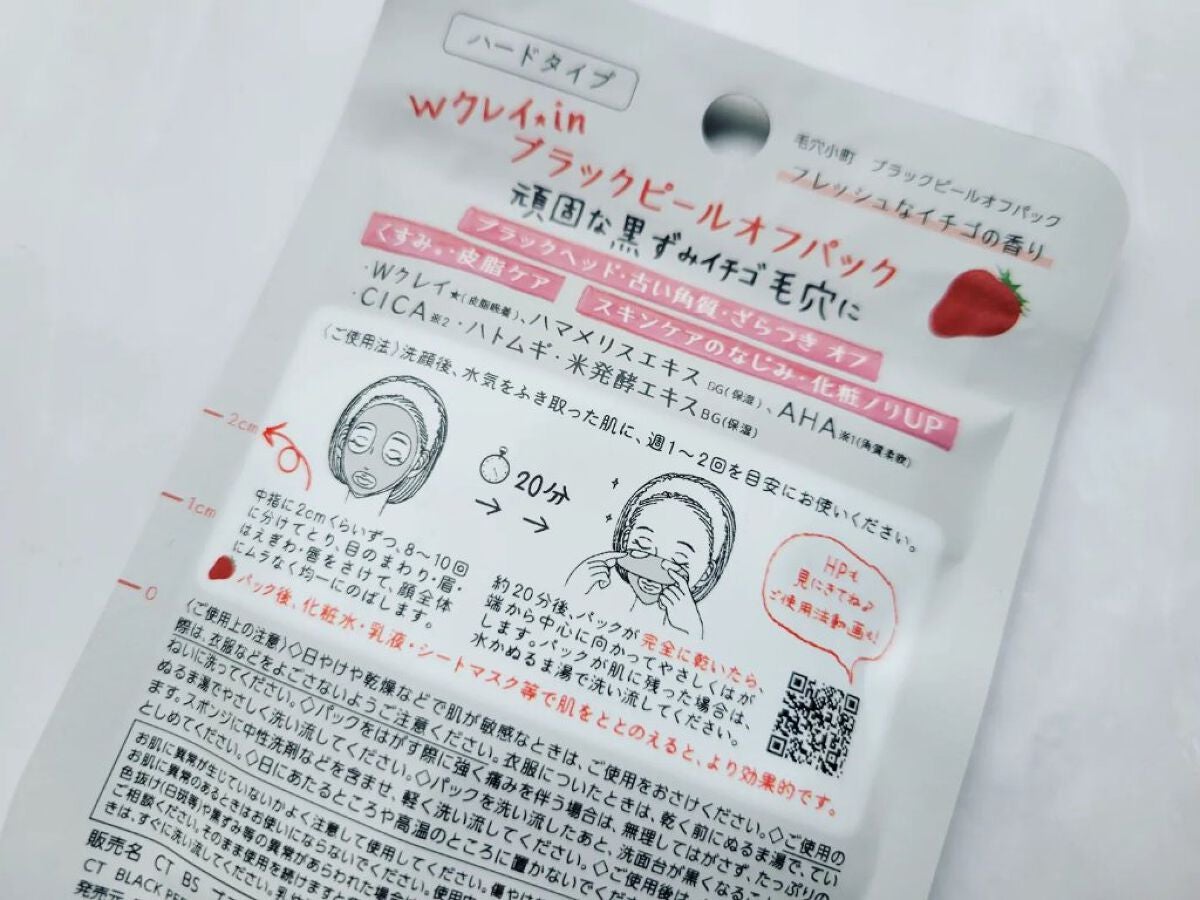 ハードタイプ
毛穴小町 ブラックピールオフパック
フレッシュなイチゴの香り
Wクレイ★in
ブラックピールオフパック
頑固な黒ずみイチゴ毛穴に
ブラックヘッド・古い角質・ざらつき オフ
くすみ。・皮脂ケア
スキンケアのなじみ・化粧ノリUP
・Wクレイ★(皮脂吸着)、ハマメリスエキスBG(保湿)、AHA※1(角質柔軟)
・CICA※2・ハトムギ・米発酵エキスBG(保湿)
〈ご使用法〉洗顔後、水気をふき取った肌に、週1～2回を目安にお使いください。
2cm
1cm
0
20分
中指に2cmくらいずつ、8～10回
に分けてとり、目のまわり・眉・
はえぎわ・唇をさけて、顔全体
にムラなく均一にのばします。
約20分後、パックが完全に乾いたら、
端から中心に向かってやさしくはが
します。パックが肌に残った場合は、
水かぬるま湯で洗い流してください。
HPも
見にきてね♪
ご使用法動画も!
パック後、化粧水・乳液・シートマスク等で肌をととのえると、より効果的です。
〈ご使用上の注意〉◇日やけや乾燥などで肌が敏感なときは、ご使用をおさけください。◇ご使用の
際は、衣服などをよごさないようご注意ください。衣服についたときは、乾く前にぬるま湯で、てい
ねいに洗ってください。◇パックをはがす際に強く痛みを伴う場合は、無理してはがさず、たっぷりの
ぬるま湯でやさしく洗い流してください。◇パックを洗い流したあと、洗面台が黒くなること
ます。スポンジに中性洗剤などを含ませ、軽く洗い流してください。◇ご使用後は、
としめてください。◇日にあたるところや高温のところに置かないでくだ
お肌に異常が生じていないかよく注意して使用してください。使用中
お肌に異常のあるときはお使いにならないでください。傷やけ
色抜け(白斑等)や黒ずみ等の異常があらわれた場合
ご相談ください。そのまま使用を続けますと
きは、すぐに洗い流してください。乳
販売名 CT BS
CT BLACK PE
発売元